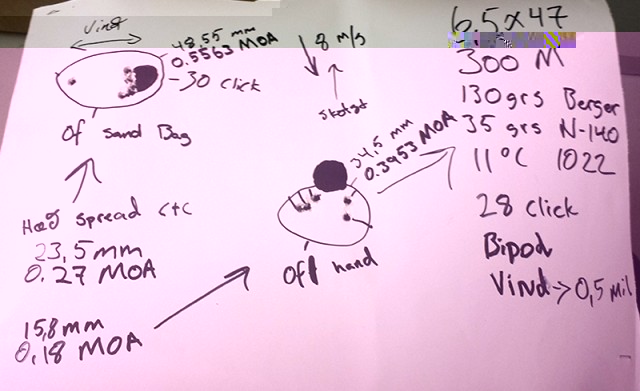 Vind
48,55 mm
0.5563 MOA
- 30 click
Of Sand Bag
Høg spread CTC
23,5 mm
0.27 MOA
15,8 mm
0,18 MOA
8 m/s
34,5 mm
0.3953 MOA
Off hand
6,5x47
300 M
130 grs Berger
35 grs N-140
11°C 1022
28 click
Bipod
Vind → 0,5 mil